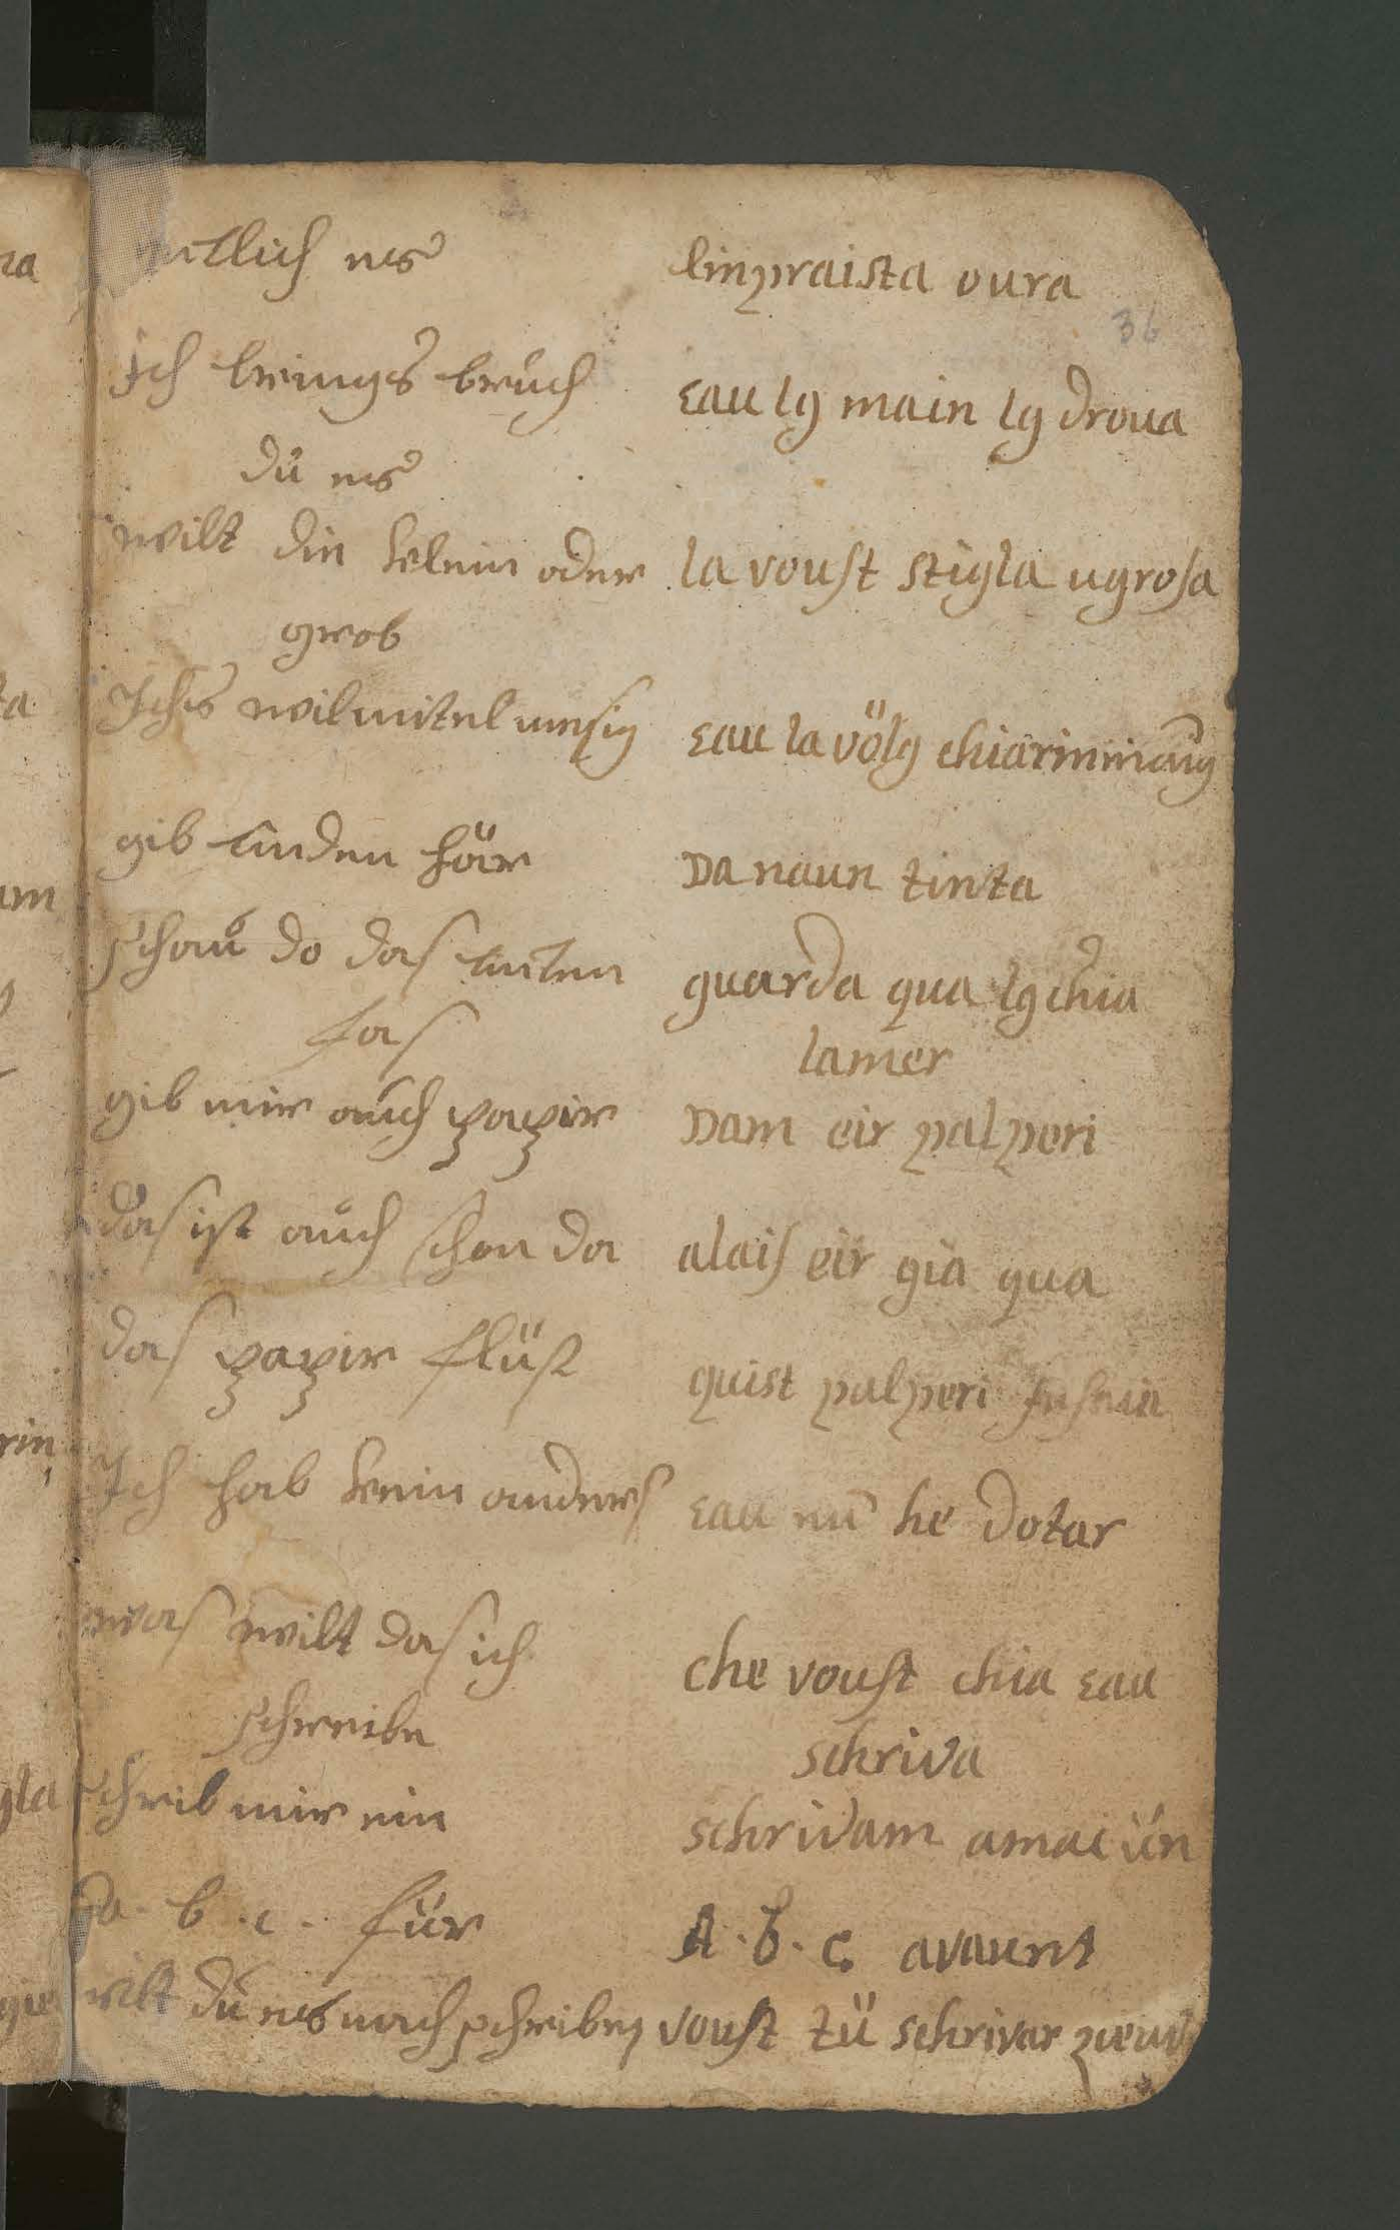 entlich es linpraista oura
36
Ich brings brůch eau lg main lg droua
dů es
wilt din klein oder la voust stigla u grosa
grob
Ichs wil mitel mesig eau la völg chiarimmaung
gib tinden här Da naun tinta
schaů do das tinten guarda qua lg chia
fas lamer
gib mir aůch papir Dam eir palperi
das ist aůch schon da alais eir gia qua
das papir flüst quist palperi
Ich hab kein anders eau nū he dotar
was wilt das ich che voust chia eau
schreibe schriva
schrib mir ein schrivam amai ün
a. b. c. für A. b. c. avaunt
wilt dů es nach schreiben voust tü schrivar zieva